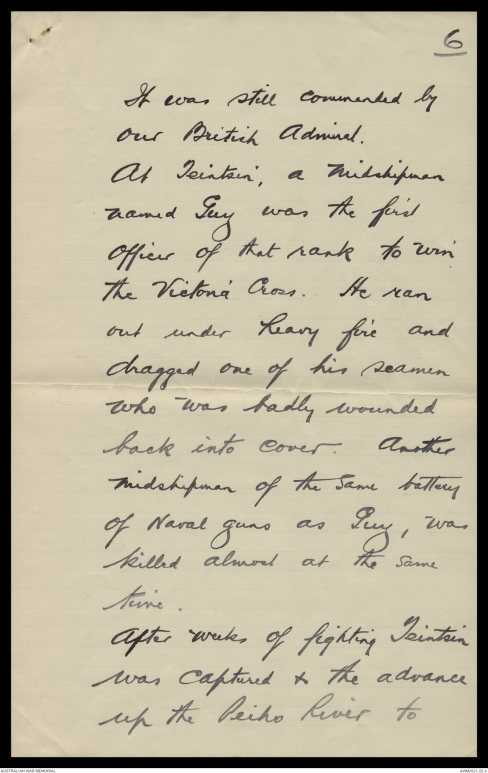 6
It was still commanded by
our British Admiral.
At Teintsin, a midshipman
named Guy was the first
officer of that rank to win
the Victoria Cross. He ran
out under heavy fire and
dragged one of his seamen
who was badly wounded
back into cover. Another
midshipman of the same battery
of Naval guns as Guy, was
killed almost at the same
time.
After weeks of fighting Teintsin
was captured & the advance
up the Peiho River to
AUSTRALIAN WAR MEMORIAL